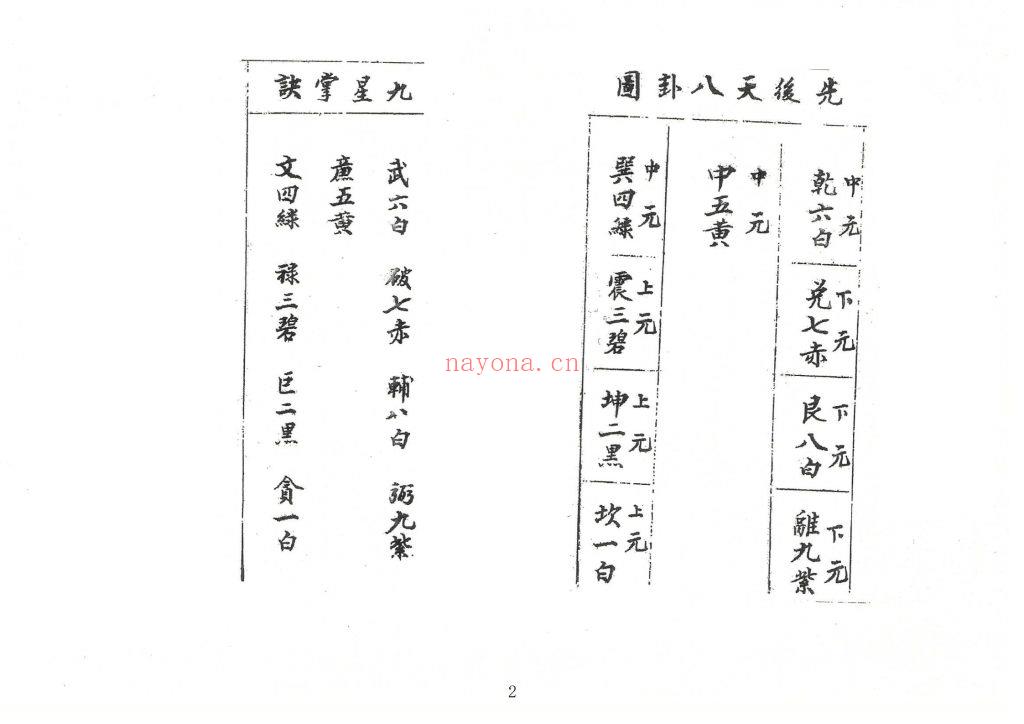 先後天八卦圖
中元
乾六白
下元
兌七赤
下元
艮八白
下元
離九紫
中元
中五黃
中元
巽四綠
上元
震三碧
上元
坤二黑
上元
坎一白
九星掌訣
武六白
破七赤
輔八白
弼九紫
廉五黃
文四綠
祿三碧
巨二黑
貪一白
nayona.cn
2